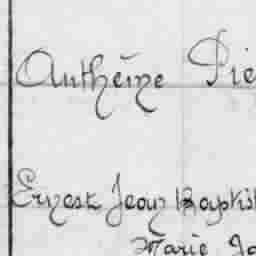 Anthéize Pie
Ernest Jean Baptist
Marie Ja